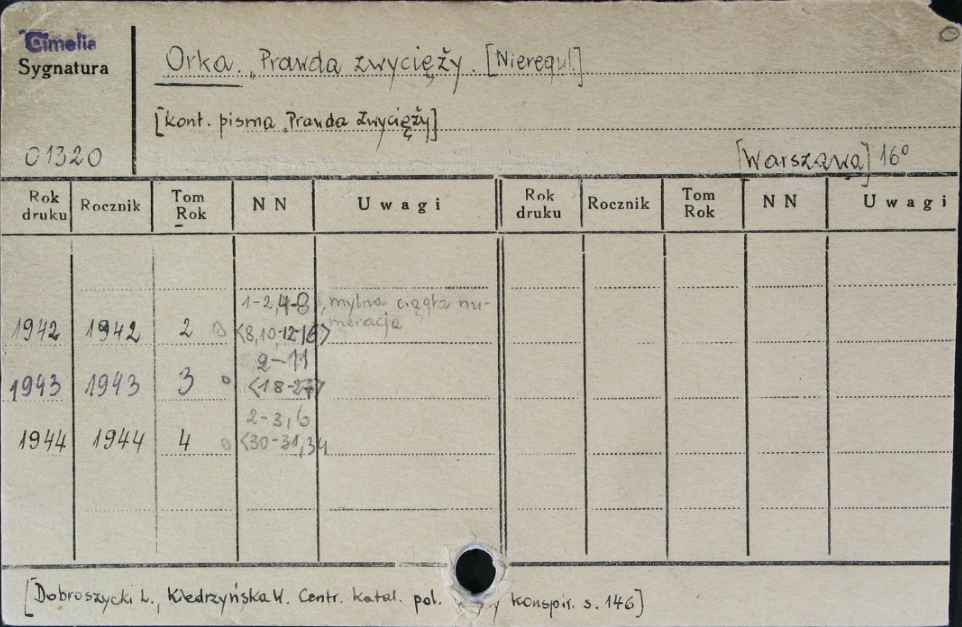 Cimelia
Sygnatura
01320
Orka. „Prawda zwycięży. [Nieregul.]
[kont. pisma „Prawda Zwycięży]
[Warszawa] 16°
Rok druku Rocznik Tom Rok NN Uwagi Rok druku Rocznik Tom Rok NN Uwagi
1-2,4-8, mylna ciągła nu-
1942 1942 2 <8,10-12-16> meracja
2-11
1943 1943 3 <18-27>
2-3,6
1944 1944 4 <30-31,34
[Dobroszycki L., Kiedrzyńska W. Centr. katal. pol. konspir. s. 146]